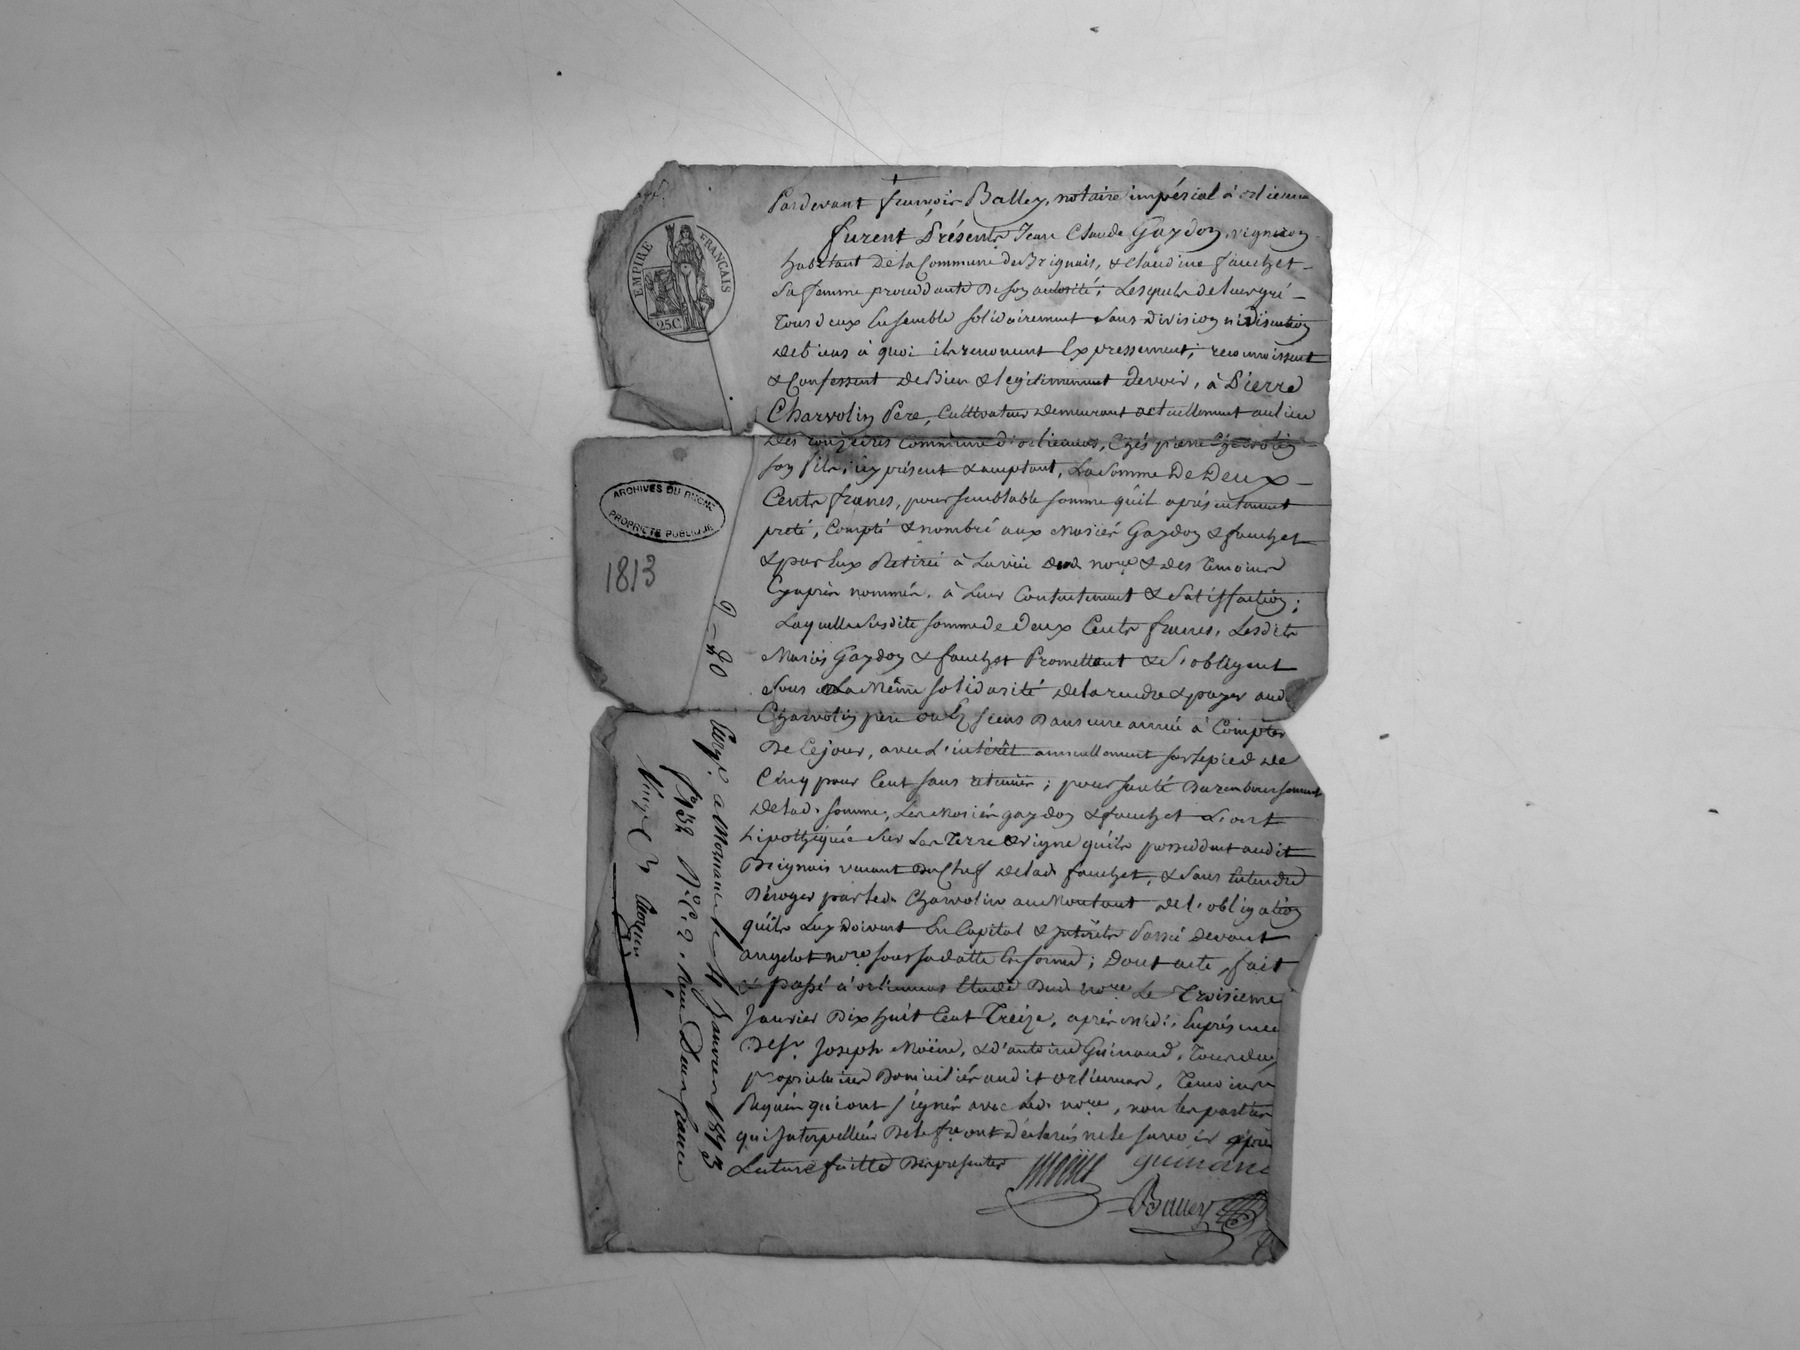 Pardevant françois Balley, notaire impérial à orlienas
furent Présents Jean Claude Gaydon, vigneron
habitant de la Commune de Brignais, & Claudine fauchet
Sa femme procédante de son autorité; Lesquels de leur gré
Tous deux Ensemble solidairement sans division ni discution
de biens à quoi ils renoncent Expressement; reconnoissent
& Confessent de Bien & légitimement devoir, à Pierre
Charvolin Pere, Cultivateur demeurant actuellement au lieu
des commune d'orlienas, Chés pierre Charvolin
son fils, icy présent & acceptant, La Somme De Deux
Cents francs, pour semblable somme qu'il a présentement
preté, Compté & nombré aux Mariés Gaydon & fauchet
& par Eux Retirée à la vüe dud. nore & des Temoins
Cyaprès nommés, à Leur Contentement & Satisfaction;
Laquelle Susdite somme de deux Cents francs, Lesdits
Mariés Gaydon & fauchet Promettent & S'obligent
Sous La Même solidarité de la rendre & payer aud.
Charvolin pere ou Es siens Dans une année à Compter
De Ce jour, avec L'intérêt annuellement sur le pied de
Cinq pour Cent sans retenüe; pour sureté Du remboursement
de lad. somme, Les Mariés gaydon & fauchet L'ont
hipothéquée sur Les Terre & vigne qu'ils possedent audit
Brignais venant Du Chef de lad. fauchet, & sans Entendre
Déroger par led. Charvolin au Montant de l'obligation
qu'ils Luy doivent En Capital & intérêts Passé devant
angelot nore sous sa datte En forme; dont acte, fait
& passé à orlienas Etude Dud. nore Le Troisieme
Janvier Dix huit Cent Treize, après Midi, En présence
De Sr. Joseph Moïne, & d'antoine Guinand, Tous deux
proprietaires Domiciliés audit orlienas, Temoins
Requis qui ont signés avec Led. nore, non les parties
qui Interpellées De le fre ont déclarés ne le savoir après
Lecture faitte Des présentes
Moïne
guinand
Balley
EMPIRE FRANÇAIS
25C
ARCHIVES DU RHÔNE
PROPRIÉTÉ PUBLIQUE
1813
Enregé. à Mornant le Janvier 1813
fo. 32 Ro. Ce. 2. Reçu Deux francs
Vingt C.